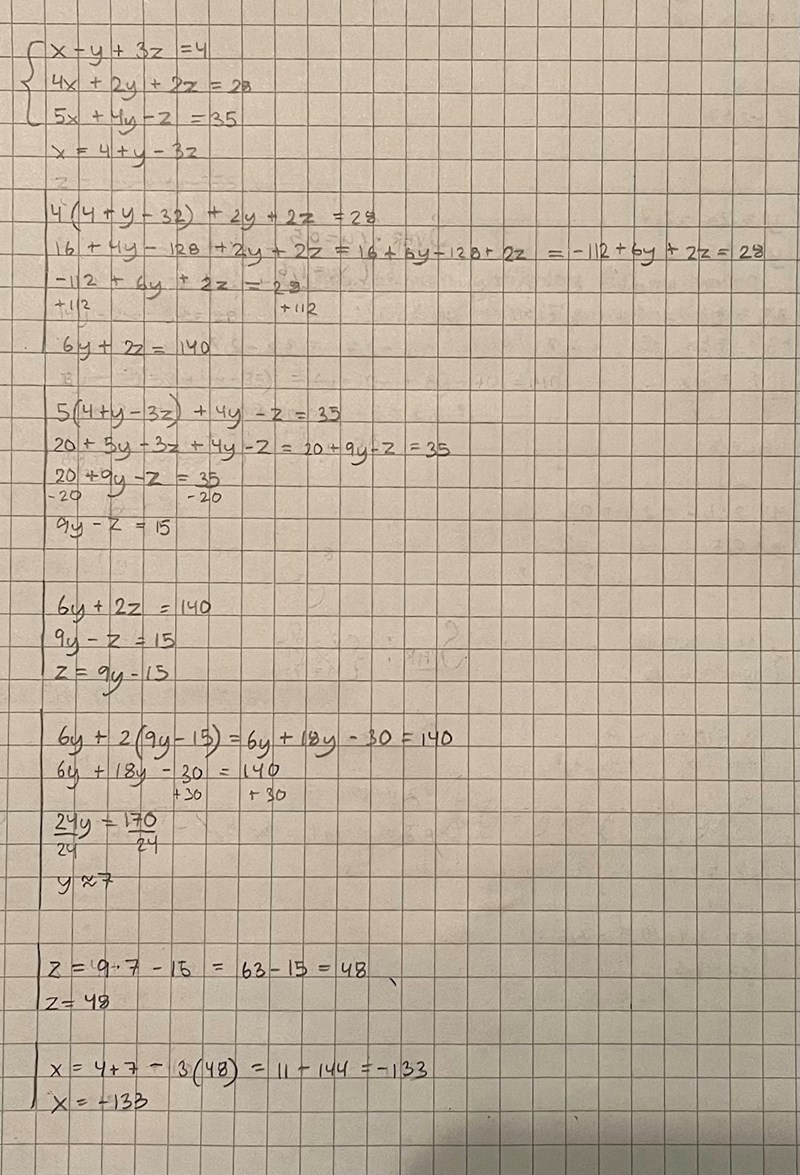 x - y + 3z = 4
4x + 2y + 2z = 28
5x + 4y - z = 35
x = 4 + y - 3z
4(4 + y - 32) + 2y + 2z = 28
16 + 4y - 128 + 2y + 2z = 16 + 6y - 128 + 2z = -112 + 6y + 2z = 28
-112 + 6y + 2z = 28
+112 +112
6y + 2z = 140
5(4 + y - 3z) + 4y - z = 35
20 + 5y - 3z + 4y - z = 20 + 9y - z = 35
20 + 9y - z = 35
-20 -20
9y - z = 15
6y + 2z = 140
9y - z = 15
z = 9y - 15
6y + 2(9y - 15) = 6y + 18y - 30 = 140
6y + 18y - 30 = 140
+30 +30
24y = 170
24 24
y ≈ 7
z = 9·7 - 15 = 63 - 15 = 48
z = 48
x = 4 + 7 - 3(48) = 11 - 144 = -133
x = -133